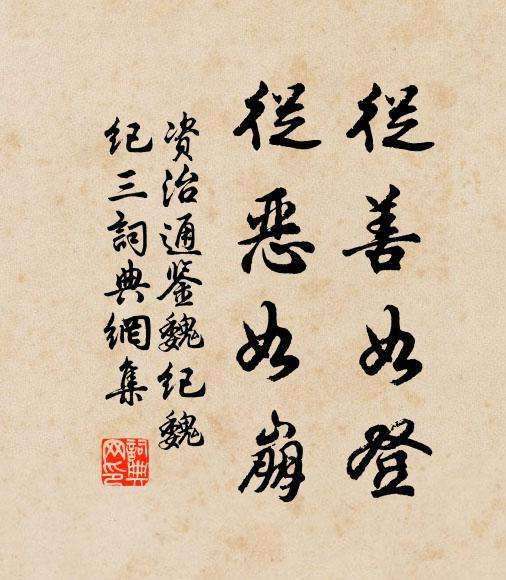 從善如登
從惡如崩
资治通鉴魏纪魏
纪三詞典網集
詞典
网印